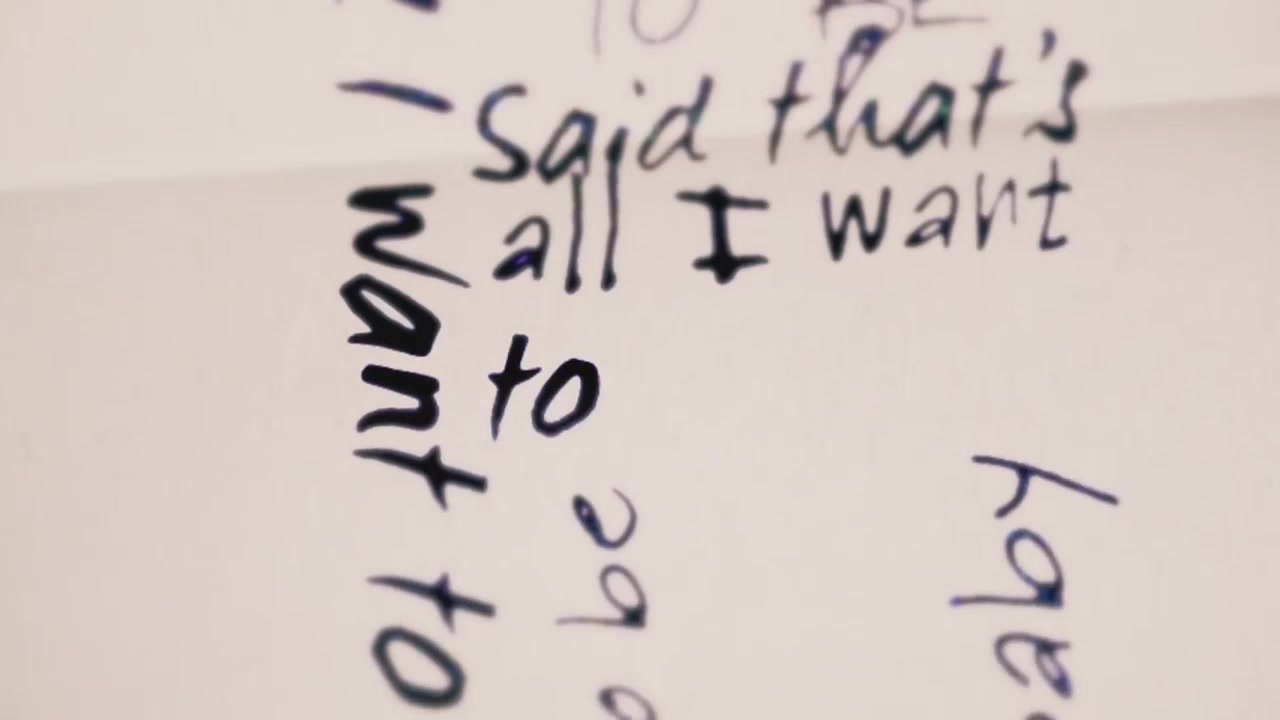 To BE
Said that's
all I want
to
I want to
be